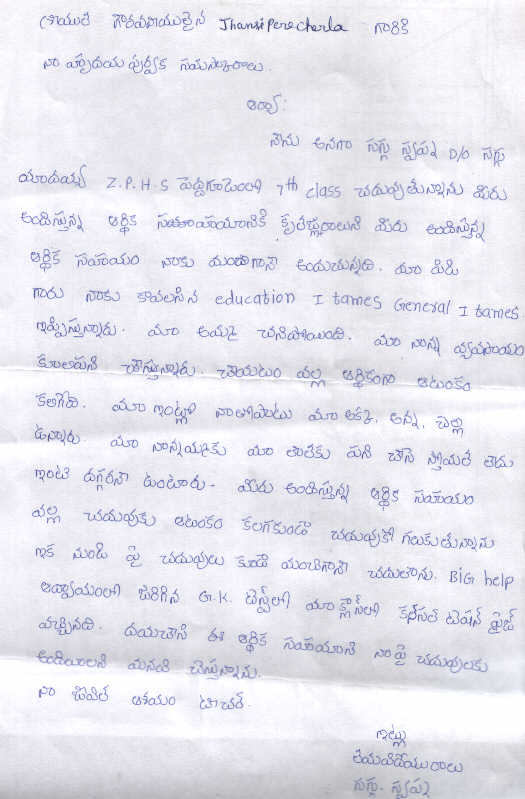 గౌరవనీయులైన Jhansi Perecherla గారికి
నా హృదయ పూర్వక నమస్కారాలు.
ఆర్యా:
నేను అనగా సగ్గు స్వప్న D/O సగ్గు
యాదయ్య Z.P.H.S పెద్దగూడెంలో 7th class చదువుతున్నాను మీరు
అందిస్తున్న ఆర్థిక సహాయానికి కృతజ్ఞురాలుని మీరు అందిస్తున్న
ఆర్థిక సహాయం నాకు మంచిగానే అందుచున్నది. మా పిడి
గారు నాకు కావలసిన education I tames General I tames
ఇప్పిస్తున్నారు. మా అమ్మ చనిపోయింది. మా నాన్న వ్యవసాయం
కూలిపని చేస్తున్నారు. చేయటం వల్ల ఆర్థికంగా ఆటంకం
కలిగేది. మా ఇంట్లో నాతోపాటు మా అక్క, అన్న, చెల్లి
ఉన్నారు. మా నాన్నమ్మకు మా తాతకు పని చేసే స్తోమత లేదు
ఇంటి దగ్గరనే ఉంటారు - మీరు అందిస్తున్న ఆర్థిక సహాయం
వల్ల చదువుకు ఆటంకం కలగకుండా చదువుకో గలుకుతున్నాను
ఇక నుండి పై చదువులు కూడా మంచిగానే చదుతాను. BiG help
ఆధ్వర్యంలో జరిగిన G.K. టెస్ట్‌లో మా క్లాస్‌లో కన్సలేటషన్ ప్రైజ్
వచ్చినది. దయచేసి ఈ ఆర్థిక సహాయాన్ని నా పై చదువులకు
అందించాలని మనవి చేస్తున్నాను.
నా జీవిత ఆశయం టీచర్.
ఇట్లు
సగ్గు. స్వప్న